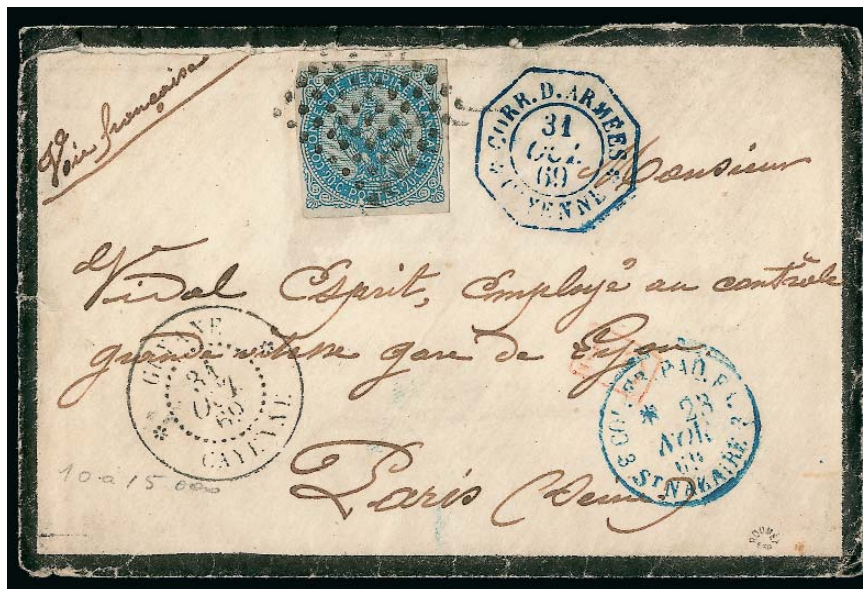 Voie française
COLONIES DE L'EMPIRE FRANÇAIS
CORR. D. ARMÉES
31
OCT.
69
CAYENNE
Monsieur
Vidal Esprit, Employé au contrôle
grande vitesse gare de Lyon
GUYANE
31
OCT
69
CAYENNE
COL. FR. PAQ. F.
23
NOV
69
3 ST NAZAIRE 3
10 à 15 000
Paris (Seine)
ROUMET